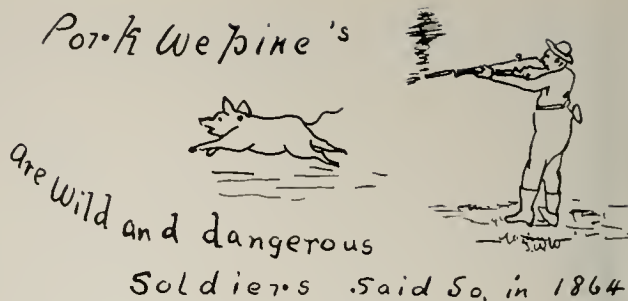 Pork We pine's
are wild and dangerous
Soldiers said so in 1864